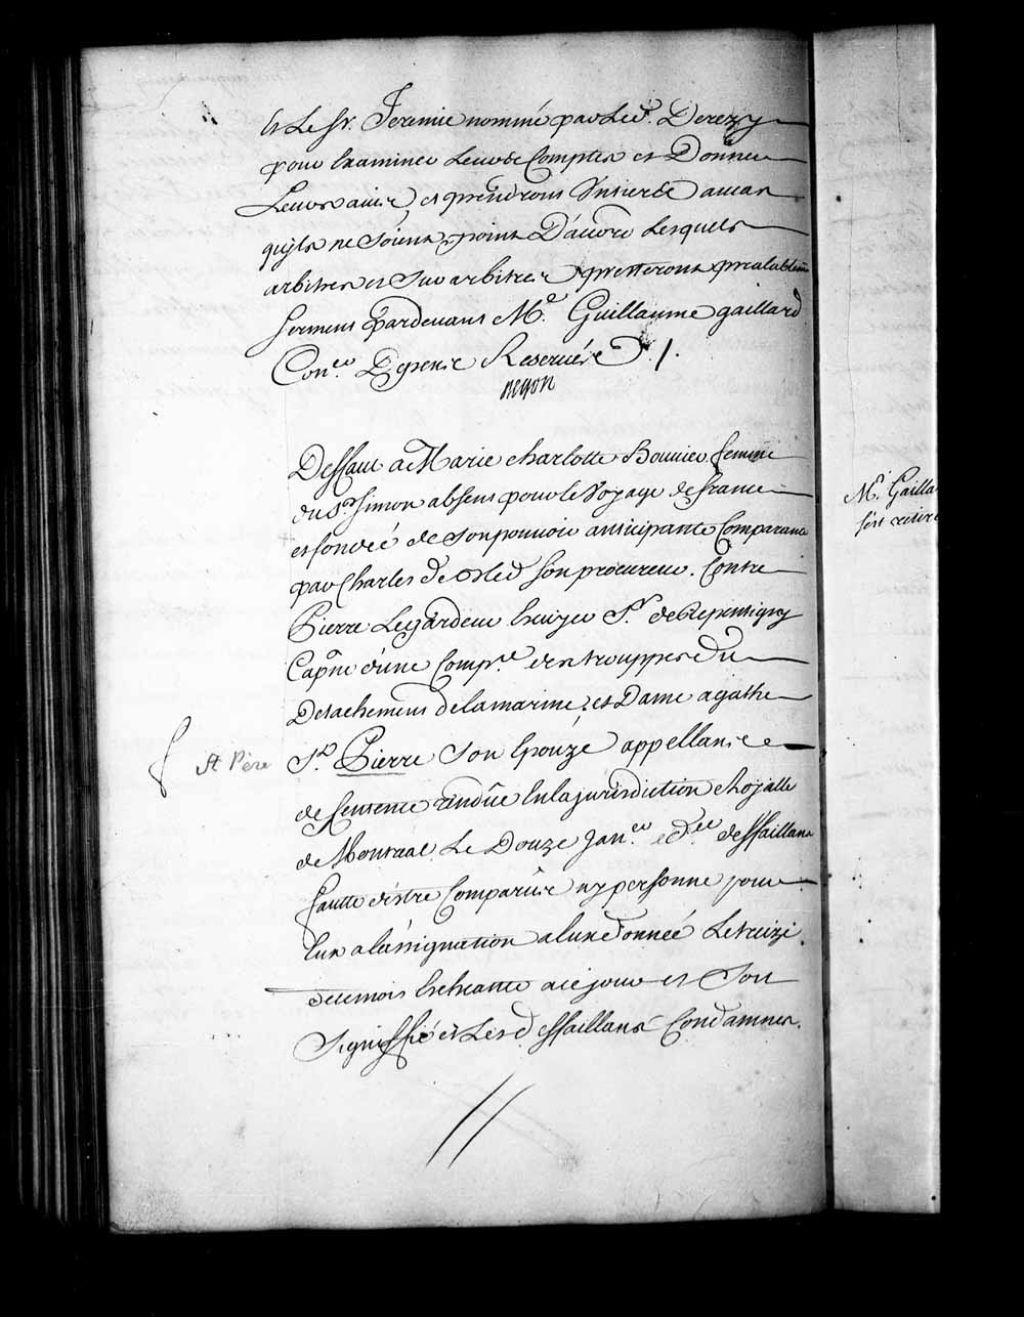 et Le Sr. Jeremie nommé par Led. Derezy
pour Examiner Leursde Comptes et Donner
Leurs avis, et prendrons Untierse aucas
quils ne Soient point D'accord Lesquels
arbitres et Sur arbitre presterons prealablem
serment pardevans Me. Guillaume gaillard
Coner. Depens Reservés /.
Begon
Deffaut a Marie charlotte femme
du Sr. Simon absens pour le Voyage defrance
et fondée de Sonpouvoir anticipante Comparans
par Charles de son procureur. Contre
Pierre Legardeur Ecuyer Sr. deRepentigny
Capne d'une Compie. des trouppes Du
Detachement delamarine, et Dame agathe
St. Pierre Son Epouze appellans
de sentence rendüe Enlajurisdiction Royalle
de Monreal Le Douze Janer. deffaillans
fautte d'estre Comparus ny personne pour
Eux alassignation aluxdonnée Letreize
decemois Echeante acejour et Son
Signiffié et Lesd. deffaillans Condamnes.
St Père
Mr. Gailla
s'est retiré